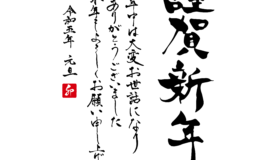 謹賀新年
年中は大変お世話になり
ありがとうございました
年もよろしくお願い申し上
令和五年 元旦
卯